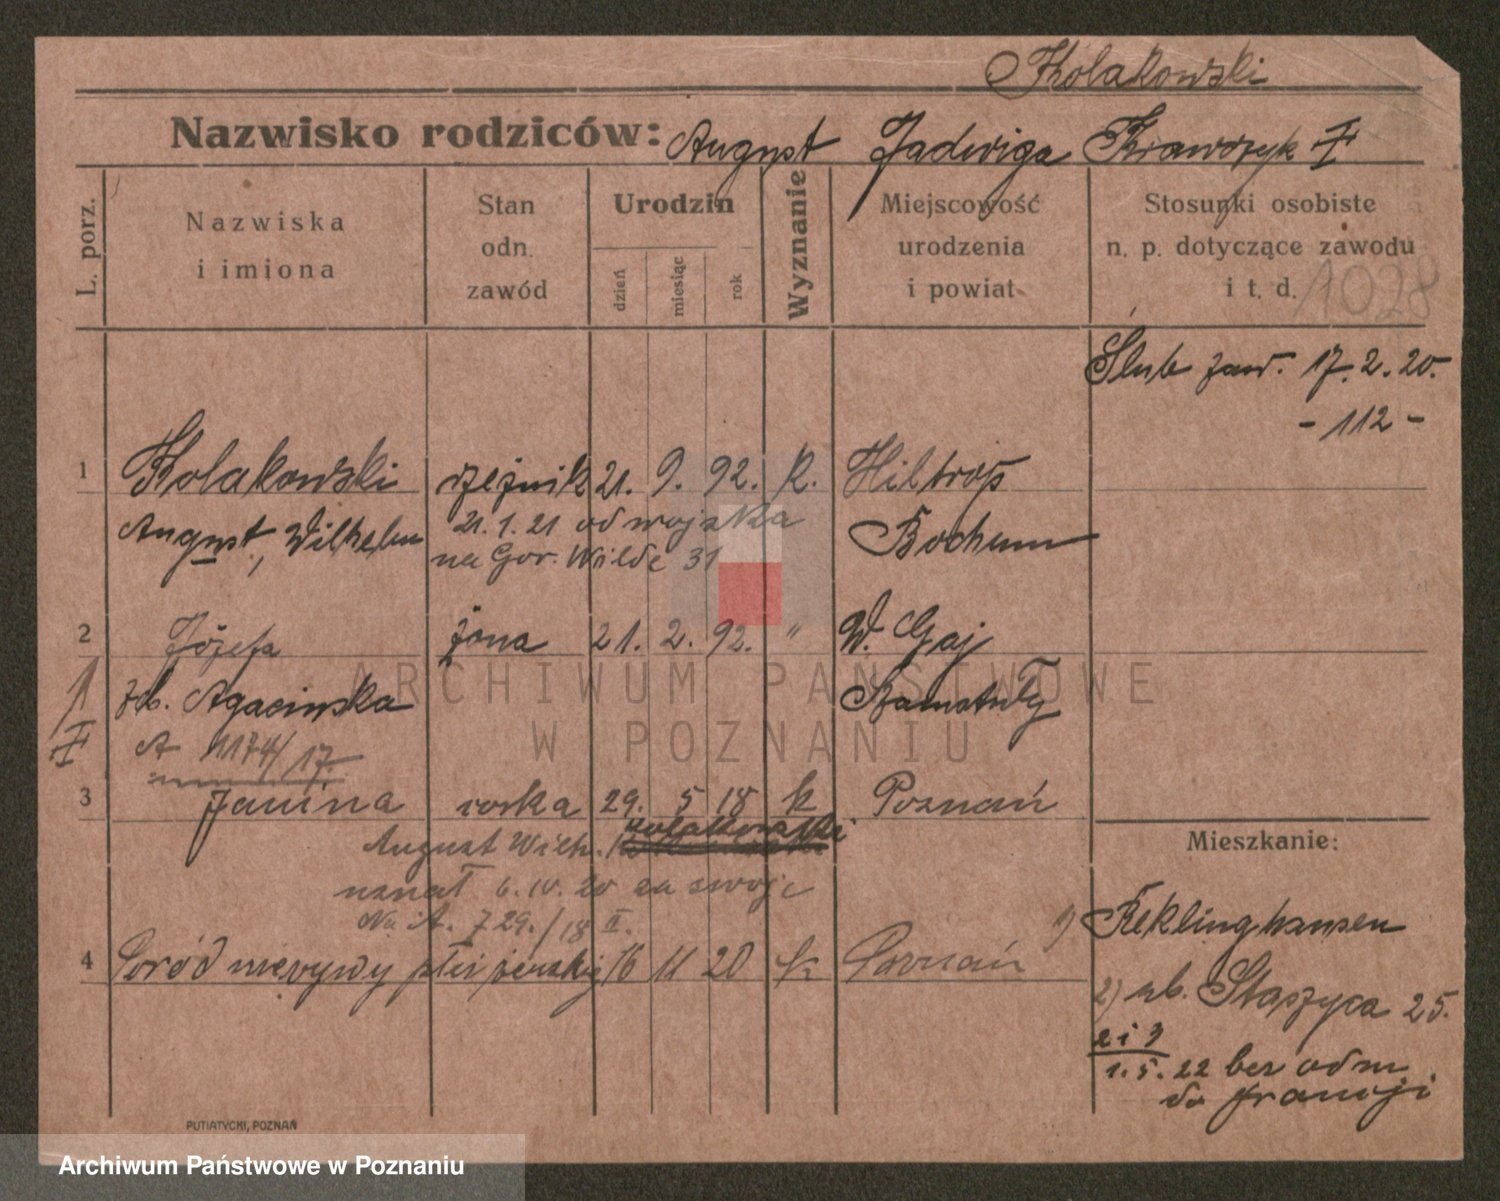 Kolakowski
Nazwisko rodziców: August Jadwiga Krawczyk
L. porz.
Nazwiska
i imiona
Stan
odn.
zawód
Urodzin
dzień
miesiąc
rok
Wyznanie
Miejscowość
urodzenia
i powiat
Stosunki osobiste
n. p. dotyczące zawodu
i t. d.
1028
Ślub zaw. 17.2.20.
- 112 -
1 Kolakowski rzeźnik 21. 9. 92. k. Hiltrop
August, Wilhelm 21.1.21 od wojska Bochum
na Gor. Wilde 31
2 Józefa żona 21. 2. 92. " W. Gaj
zd. Agacinska Szamotuły
A 1174/17.
3 Janina corka 29. 5 18 k Poznań
August Wilh. Kolakowski
uznał 6.IV.20 za swoje
No A. 729./18 II.
4 Poród nieżywy płci żenskiej 16 11 20 k Poznań
Mieszkanie:
1) Reklinghausen
2) ub. Staszyca 25.
2 i 3
1.5.22 bez odm
do Francji
PUTIATYCKI, POZNAŃ
ARCHIWUM PAŃSTWOWE
W POZNANIU
Archiwum Państwowe w Poznaniu